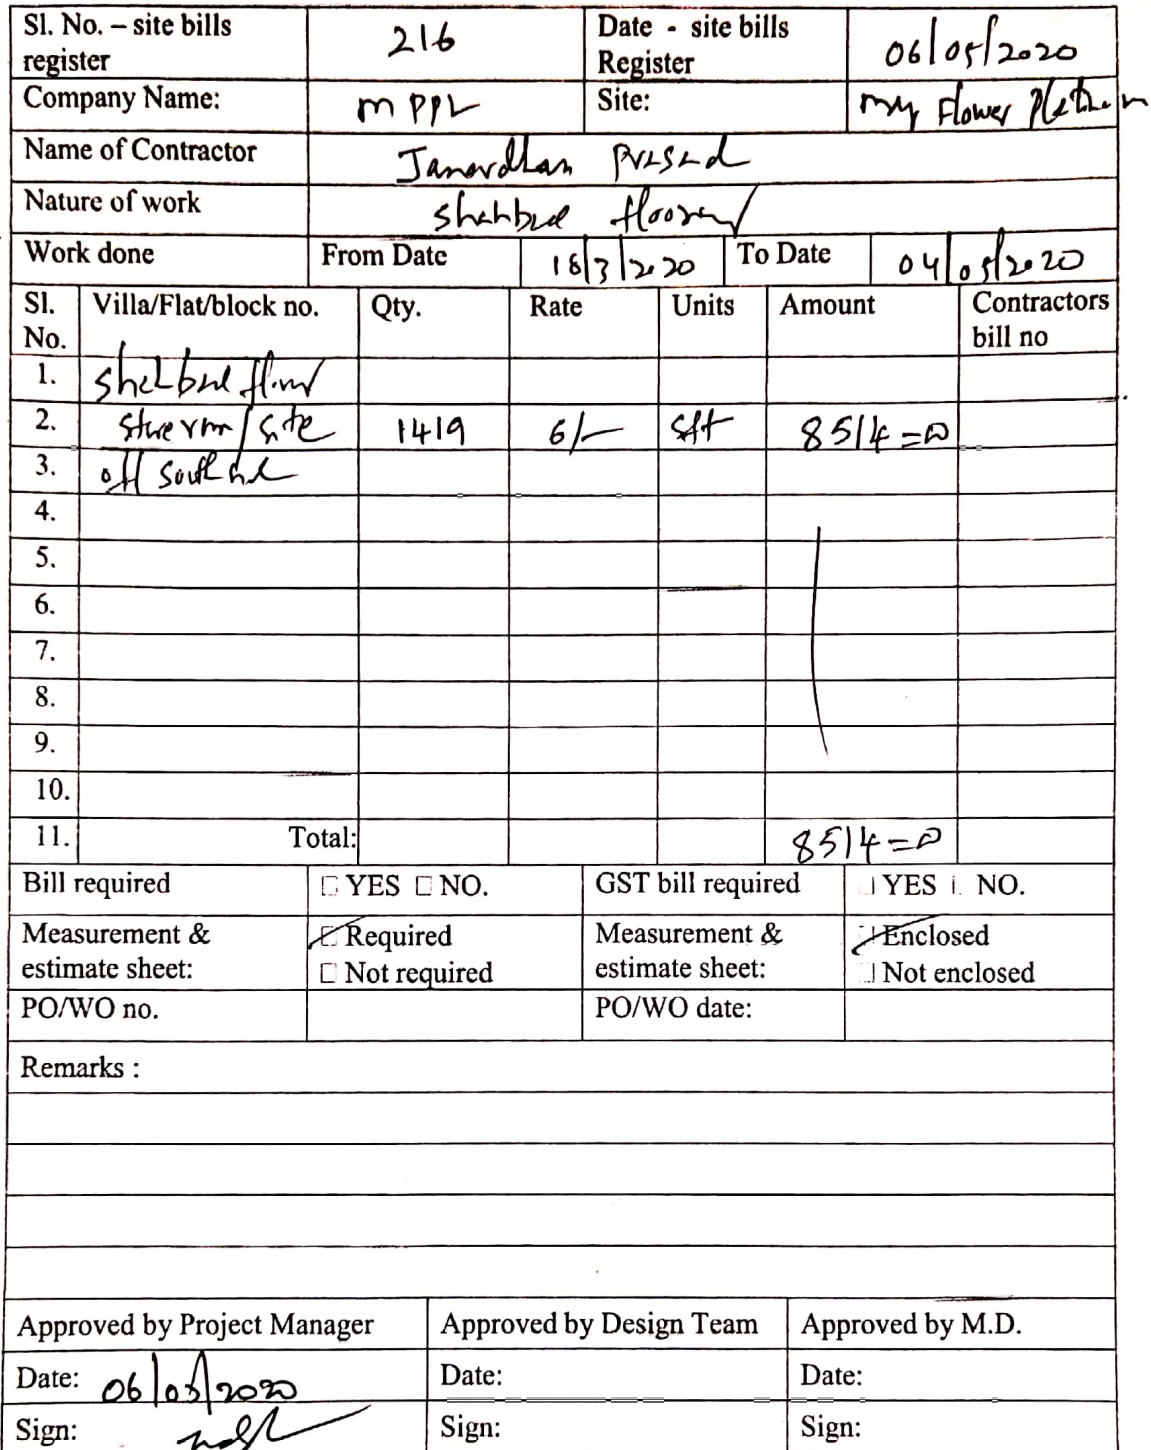 Sl. No. – site bills register 216 Date - site bills Register 06/05/2020
Company Name: MPPL Site: my Flower
Name of Contractor Janardhan Prasad
Nature of work
Work done From Date 18/3/2020 To Date 04/05/2020
Sl. No. Villa/Flat/block no. Qty. Rate Units Amount Contractors bill no
1.
2. 1419 6/- sft 8514=00
3. off
4.
5.
6.
7.
8.
9.
10.
11. Total: 8514=00
Bill required YES NO. GST bill required YES NO.
Measurement & estimate sheet: Required Not required Measurement & estimate sheet: Enclosed Not enclosed
PO/WO no. PO/WO date:
Remarks :
Approved by Project Manager Approved by Design Team Approved by M.D.
Date: 06/05/2020 Date: Date:
Sign: Sign: Sign: